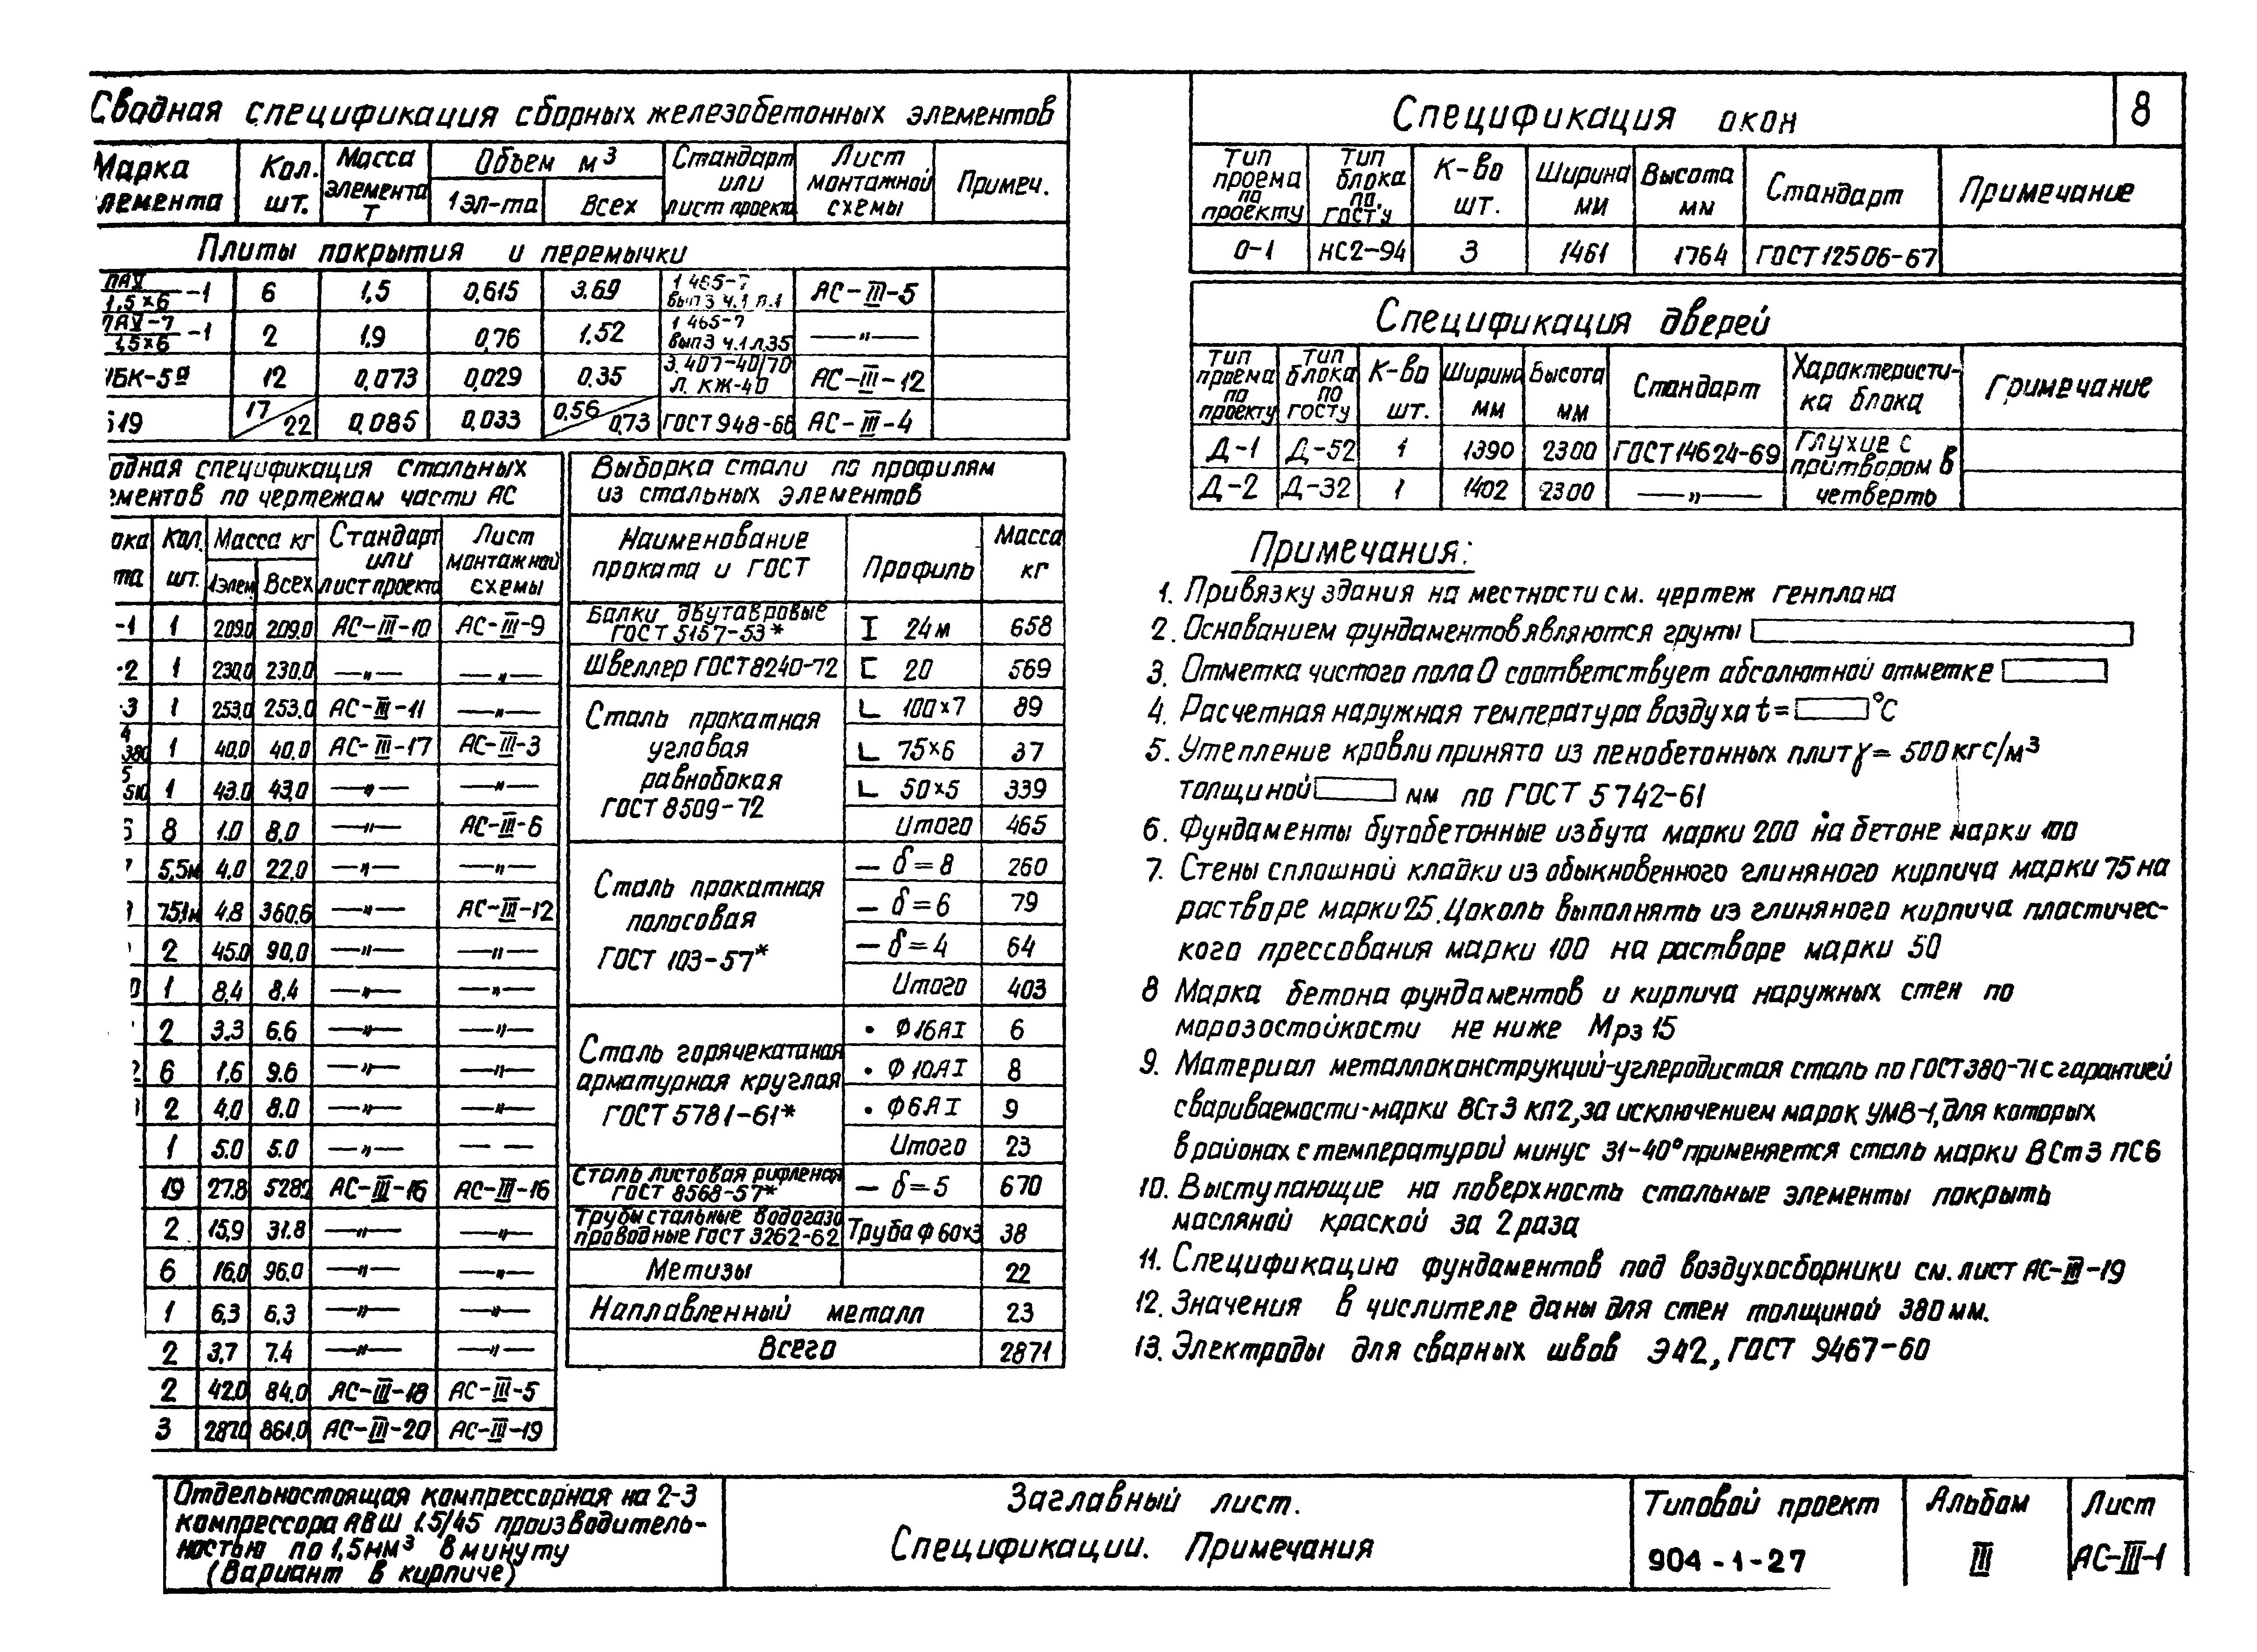 8
Сводная спецификация сборных железобетонных элементов
Марка элемента | Кол. шт. | Масса элемента Т | Объем м³ | Стандарт или лист проекта | Лист монтажной схемы | Примеч.
1 эл-та | Всех
Плиты покрытия и перемычки
1,5×6 -1 | 6 | 1,5 | 0,615 | 3.69 | 1 465-7 вып 3 ч.1 л.1 | АС-III-5
1,5×6 -1 | 2 | 1,9 | 0,76 | 1.52 | 1 465-7 вып3 ч.1 л.35 | —〃—
БК-5а | 12 | 0,073 | 0,029 | 0.35 | 3.407-40/70 Л. КЖ-40 | АС-III-12
19 | 17/22 | 0,085 | 0,033 | 0.56/0,73 | ГОСТ 948-66 | АС-III-4
одная спецификация стальных
ементов по чертежам части АС
Кол. шт. | Масса кг | Стандарт или лист проекта | Лист монтажной схемы
1 элем. | Всех
-1 | 1 | 209.0 | 209.0 | АС-III-10 | АС-III-9
-2 | 1 | 230,0 | 230.0 | —〃— | —〃—
-3 | 1 | 253.0 | 253.0 | АС-III-11 | —〃—
4 380 | 1 | 40,0 | 40,0 | АС-III-17 | АС-III-3
5 510 | 1 | 43.0 | 43,0 | —〃— | —〃—
8 | 1.0 | 8,0 | —〃— | АС-III-6
5,5м | 4,0 | 22,0 | —〃— | —〃—
75,1м | 4.8 | 360,6 | —〃— | АС-III-12
2 | 45.0 | 90,0 | —〃— | —〃—
1 | 8,4 | 8.4 | —〃— | —〃—
2 | 3.3 | 6.6 | —〃— | —〃—
6 | 1,6 | 9.6 | —〃— | —〃—
2 | 4,0 | 8.0 | —〃— | —〃—
1 | 5.0 | 5.0 | —〃— | — —
19 | 27.8 | 528,2 | АС-III-16 | АС-III-16
2 | 15,9 | 31.8 | —〃— | —〃—
6 | 16,0 | 96.0 | —〃— | —〃—
1 | 6,3 | 6.3 | —〃— | —〃—
2 | 3,7 | 7.4 | —〃— | —〃—
2 | 42.0 | 84.0 | АС-III-18 | АС-III-5
3 | 287.0 | 861.0 | АС-III-20 | АС-III-19
Выборка стали по профилям
из стальных элементов
Наименование проката и ГОСТ | Профиль | Масса кг
Балки двутавровые ГОСТ 5157-53* | I 24м | 658
Швеллер ГОСТ 8240-72 | [ 20 | 569
Сталь прокатная угловая равнобокая ГОСТ 8509-72 | L 100×7 | 89
L 75×6 | 37
L 50×5 | 339
Итого | 465
Сталь прокатная полосовая ГОСТ 103-57* | — δ=8 | 260
— δ=6 | 79
— δ=4 | 64
Итого | 403
Сталь горячекатаная арматурная круглая ГОСТ 5781-61* | • Ф16АI | 6
• Ф10АI | 8
• Ф6АI | 9
Итого | 23
Сталь листовая рифленая ГОСТ 8568-57* | — δ=5 | 670
Трубы стальные водогазопроводные ГОСТ 3262-62 | Труба Ф60×3 | 38
Метизы | 22
Наплавленный металл | 23
Всего | 2871
Спецификация окон
Тип проема по проекту | Тип блока по ГОСТ'у | К-во шт. | Ширина мм | Высота мм | Стандарт | Примечание
О-1 | НС2-94 | 3 | 1461 | 1764 | ГОСТ 12506-67
Спецификация дверей
Тип проема по проекту | Тип блока по госту | К-во шт. | Ширина мм | Высота мм | Стандарт | Характеристика блока | Примечание
Д-1 | Д-52 | 1 | 1390 | 2300 | ГОСТ 14624-69 | Глухие с притвором в четверть
Д-2 | Д-32 | 1 | 1402 | 2300 | —〃—
Примечания:
1. Привязку здания на местности см. чертеж генплана
2. Основанием фундаментов являются грунты
3. Отметка чистого пола 0 соответствует абсолютной отметке
4. Расчетная наружная температура воздуха t= °С
5. Утепление кровли принято из пенобетонных плит γ= 500кгс/м³
толщиной мм по ГОСТ 5742-61
6. Фундаменты бутобетонные из бута марки 200 на бетоне марки 100
7. Стены сплошной кладки из обыкновенного глиняного кирпича марки 75 на
растворе марки 25. Цоколь выполнять из глиняного кирпича пластичес-
кого прессования марки 100 на растворе марки 50
8 Марка бетона фундаментов и кирпича наружных стен по
морозостойкости не ниже Мрз 15
9. Материал металлоконструкций-углеродистая сталь по ГОСТ 380-71 с гарантией
свариваемости-марки ВСт3 кп2, за исключением марок УМВ-1, для которых
в районах с температурой минус 31-40° применяется сталь марки ВСт3 ПС6
10. Выступающие на поверхность стальные элементы покрыть
масляной краской за 2 раза
11. Спецификацию фундаментов под воздухосборники см. лист АС-III-19
12. Значения в числителе даны для стен толщиной 380 мм.
13. Электроды для сварных швов Э42, ГОСТ 9467-60
Отдельностоящая компрессорная на 2-3
компрессора АВШ 1.5/45 производитель-
ностью по 1,5нм³ в минуту
(Вариант в кирпиче)
Заглавный лист.
Спецификации. Примечания
Типовой проект
904-1-27
Альбом
III
Лист
АС-III-1